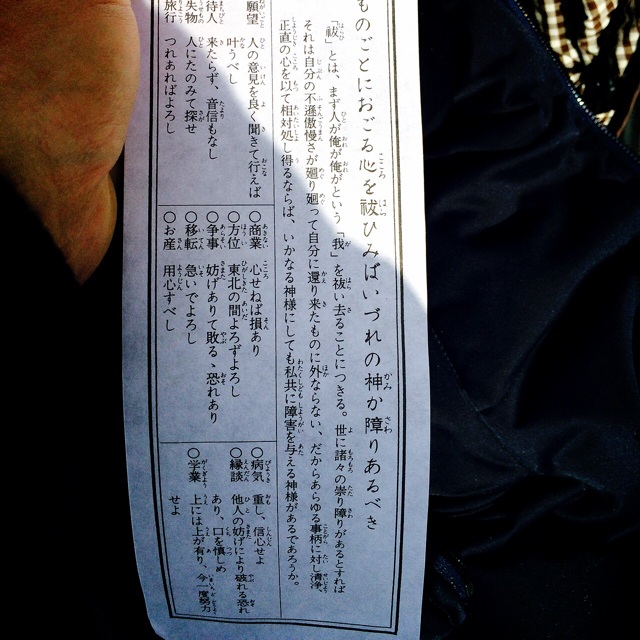 ものごとにおごる心を祓ひみばいづれの神か障りあるべき
「祓」とは、まず人が俺が俺がという「我」を祓い去ることにつきる。世に諸々の祟り障りがあるとすれば
それは自分の不遜傲慢さが廻り廻って自分に還り来たものに外ならない、だからあらゆる事柄に対し清浄、
正直の心を以て相対処し得るならば、いかなる神様にしても私共に障害を与える神様があるであろうか。
願望 人の意見を良く聞きて行えば
叶うべし
待人 来たらず、音信もなし
失物 人にたのみて探せ
旅行 つれあればよろし
○商業 心せねば損あり
○方位 東北の間よろずよろし
○争事 妨げありて敗るゝ恐れあり
○移転 急いでよろし
○お産 用心すべし
○病気 重し、信心せよ
○縁談 他人の妨げにより破れる恐れ
あり、口を慎しめ
○学業 上には上が有り、今一度努力
せよ